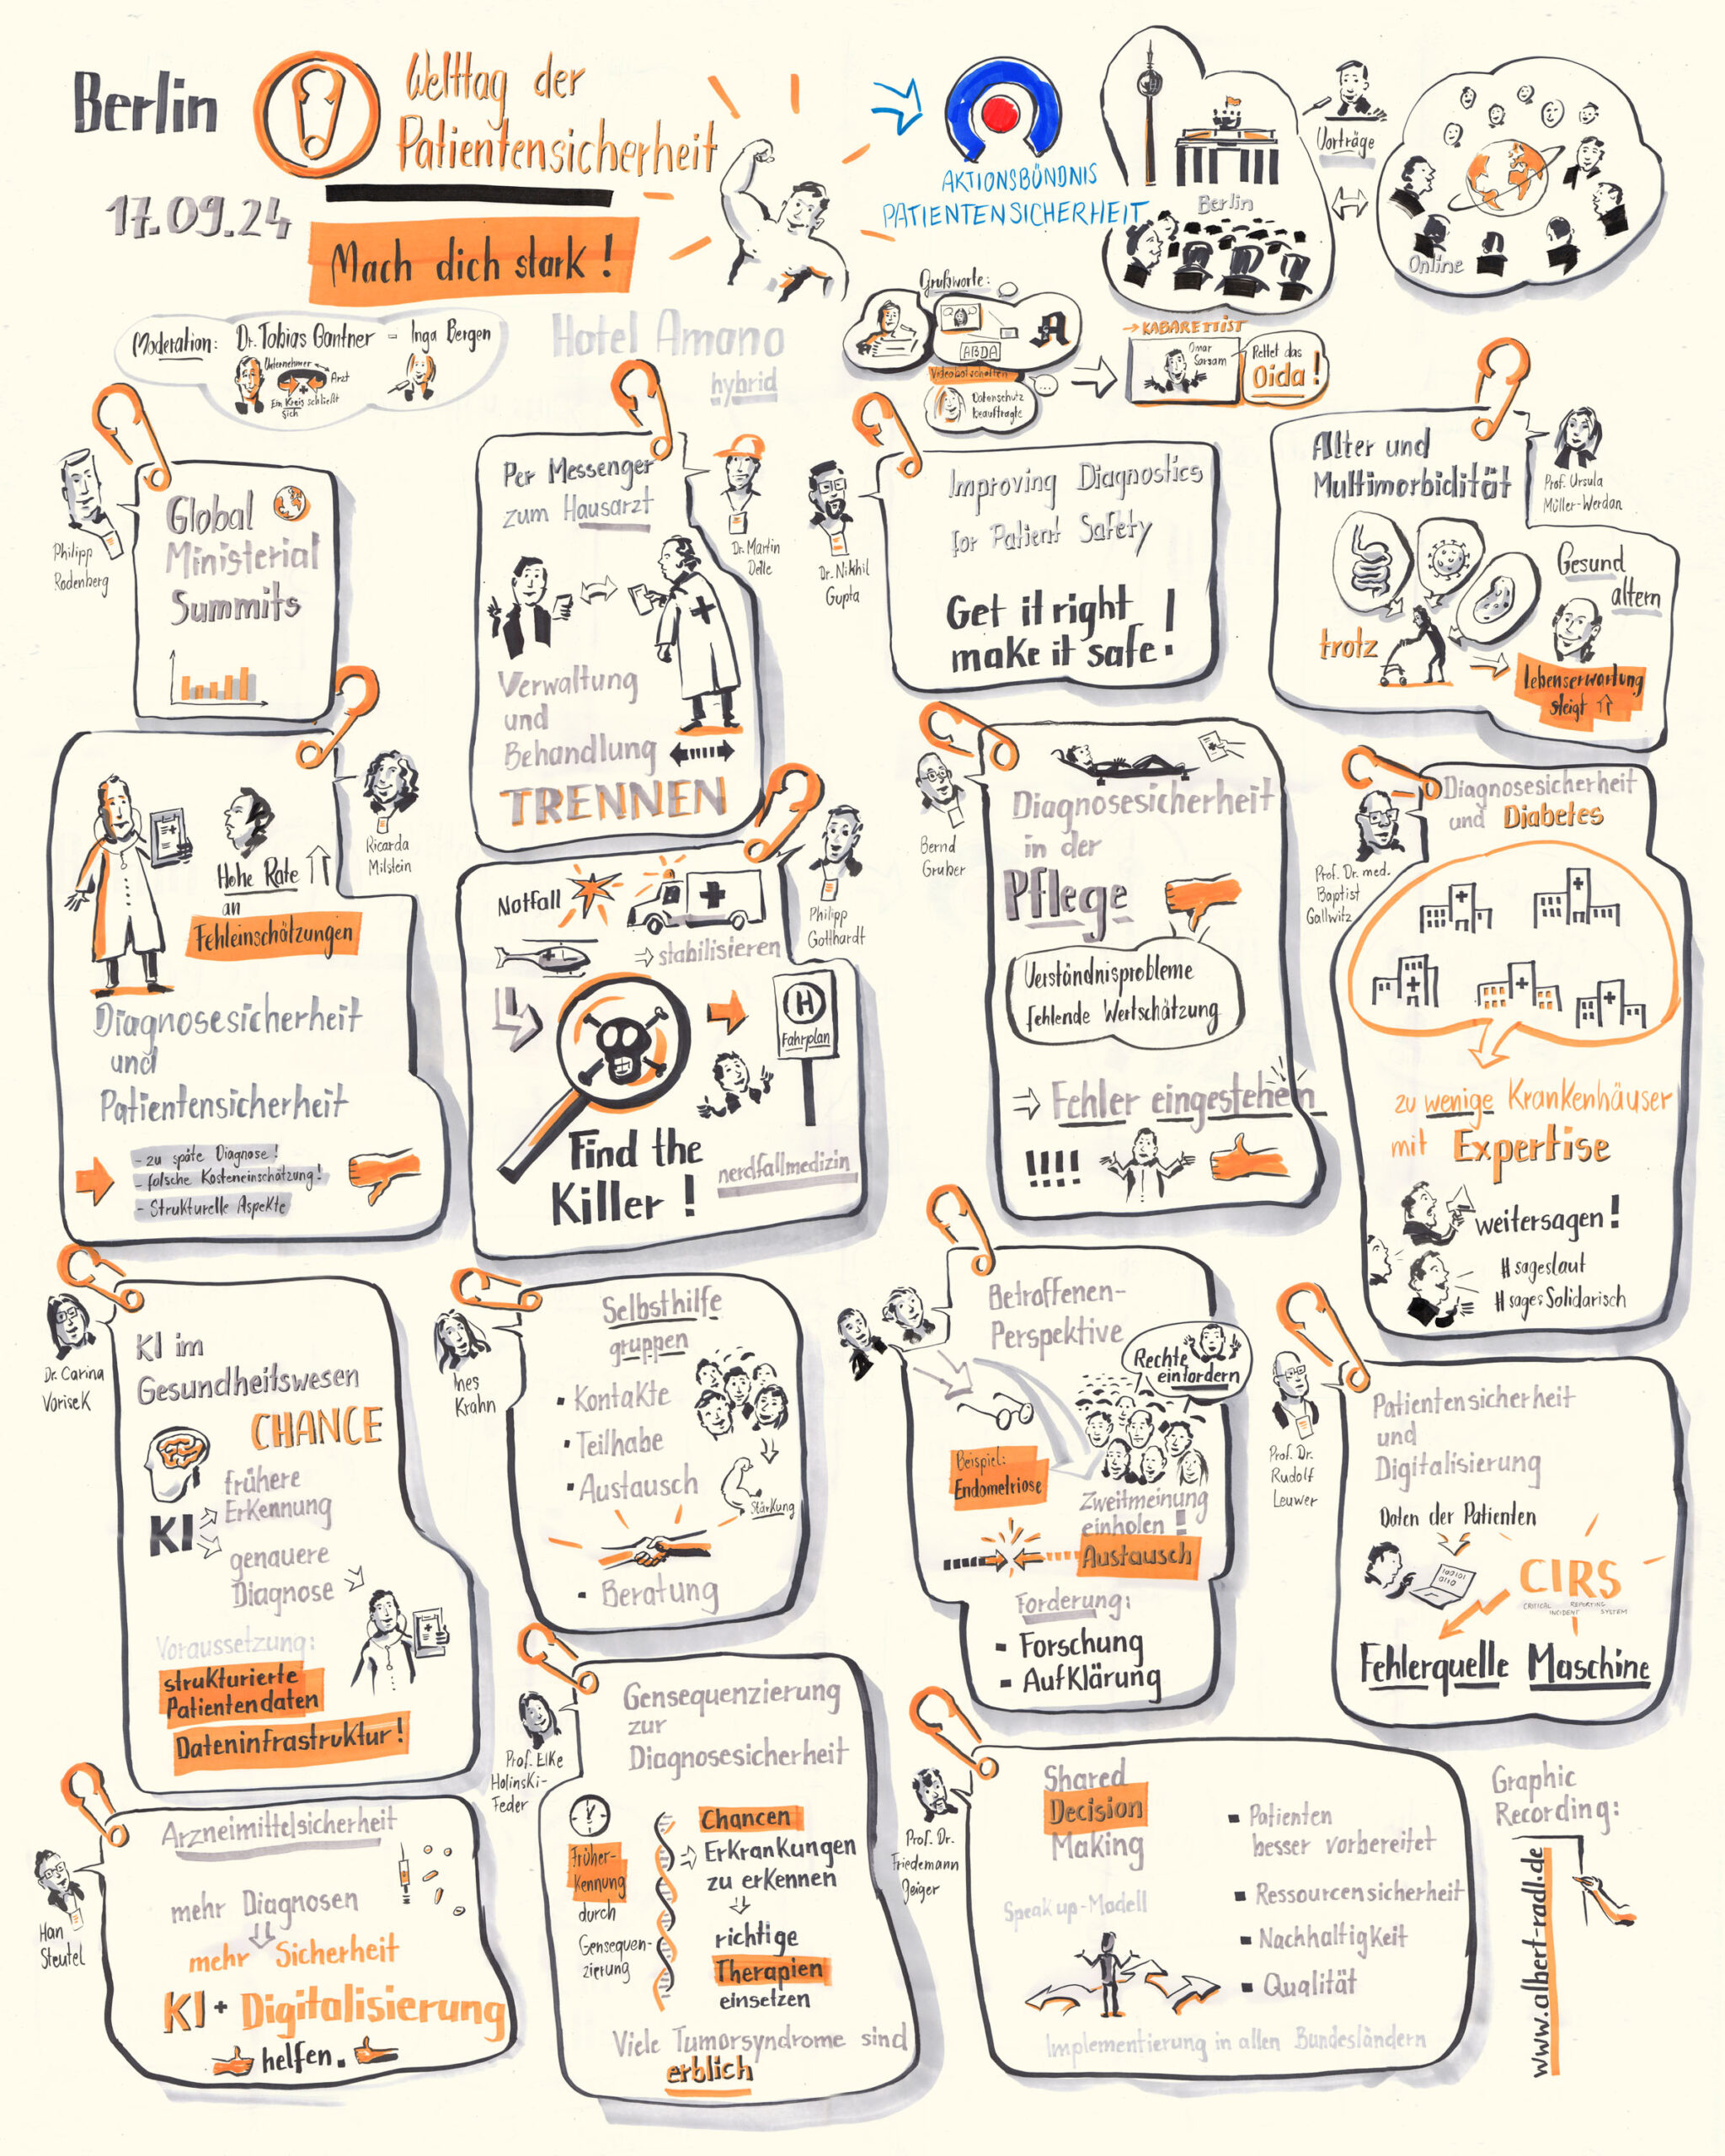 Berlin
17.09.24
Welttag der
Patientensicherheit
Mach dich stark!
AKTIONSBÜNDNIS
PATIENTENSICHERHEIT
Berlin
Vorträge
Online
Moderation: Dr. Tobias Gantner - Inga Bergen
Unternehmer
Arzt
Ein Kreis schließt
sich
Hotel Amano
hybrid
Grußworte:
ABDA
A
Videobotschaften
Datenschutz
beauftragte
→ KABARETTIST
Omar
Sarsam
Rettet das
Oida!
Philipp
Rodenberg
Global
Ministerial
Summits
Per Messenger
zum Hausarzt
Dr. Martin
Delle
Verwaltung
und
Behandlung
TRENNEN
Dr. Nikhil
Gupta
Improving Diagnostics
for Patient Safety
Get it right
make it safe!
Alter und
Multimorbidität
Prof. Ursula
Müller-Werdan
Gesund
altern
trotz
Lebenserwartung
steigt ⇑
Ricarda
Milstein
Hohe Rate
an
Fehleinschätzungen
Diagnosesicherheit
und
Patientensicherheit
- zu späte Diagnose!
- falsche Kosteneinschätzung!
- Strukturelle Aspekte
Philipp
Gotthardt
Notfall
⇒ stabilisieren
H
Fahrplan
Find the
Killer!
nerdfallmedizin
Bernd
Gruber
Diagnosesicherheit
in der
Pflege
Verständnisprobleme
fehlende Wertschätzung
⇒ Fehler eingestehen
!!!!
Prof. Dr. med.
Baptist
Gallwitz
Diagnosesicherheit
und Diabetes
zu wenige Krankenhäuser
mit Expertise
weitersagen!
#sageslaut
#sagesSolidarisch
Dr. Carina
Vorisek
KI im
Gesundheitswesen
CHANCE
KI
frühere
Erkennung
genauere
Diagnose
Voraussetzung:
strukturierte
Patientendaten
Dateninfrastruktur!
Ines
Krahn
Selbsthilfe
gruppen
▪ Kontakte
▪ Teilhabe
▪ Austausch
Stärkung
▪ Beratung
Betroffenen-
Perspektive
Rechte
einfordern
Beispiel:
Endometriose
Zweitmeinung
einholen!
Austausch
Forderung:
▪ Forschung
▪ Aufklärung
Prof. Dr.
Rudolf
Leuwer
Patientensicherheit
und
Digitalisierung
Daten der Patienten
CIRS
CRITICAL INCIDENT REPORTING SYSTEM
Fehlerquelle Maschine
Han
Steutel
Arzneimittelsicherheit
mehr Diagnosen
mehr Sicherheit
KI + Digitalisierung
helfen.
Prof. Elke
Holinski-
Feder
Gensequenzierung
zur
Diagnosesicherheit
Früher-
kennung
durch
Gensequen-
zierung
Chancen
⇒ Erkrankungen
zu erkennen
richtige
Therapien
einsetzen
Viele Tumorsyndrome sind
erblich
Prof. Dr.
Friedemann
Geiger
Shared
Decision
Making
Speak up-Modell
▪ Patienten
besser vorbereitet
▪ Ressourcensicherheit
▪ Nachhaltigkeit
▪ Qualität
Implementierung in allen Bundesländern
Graphic
Recording:
www.albert-radl.de